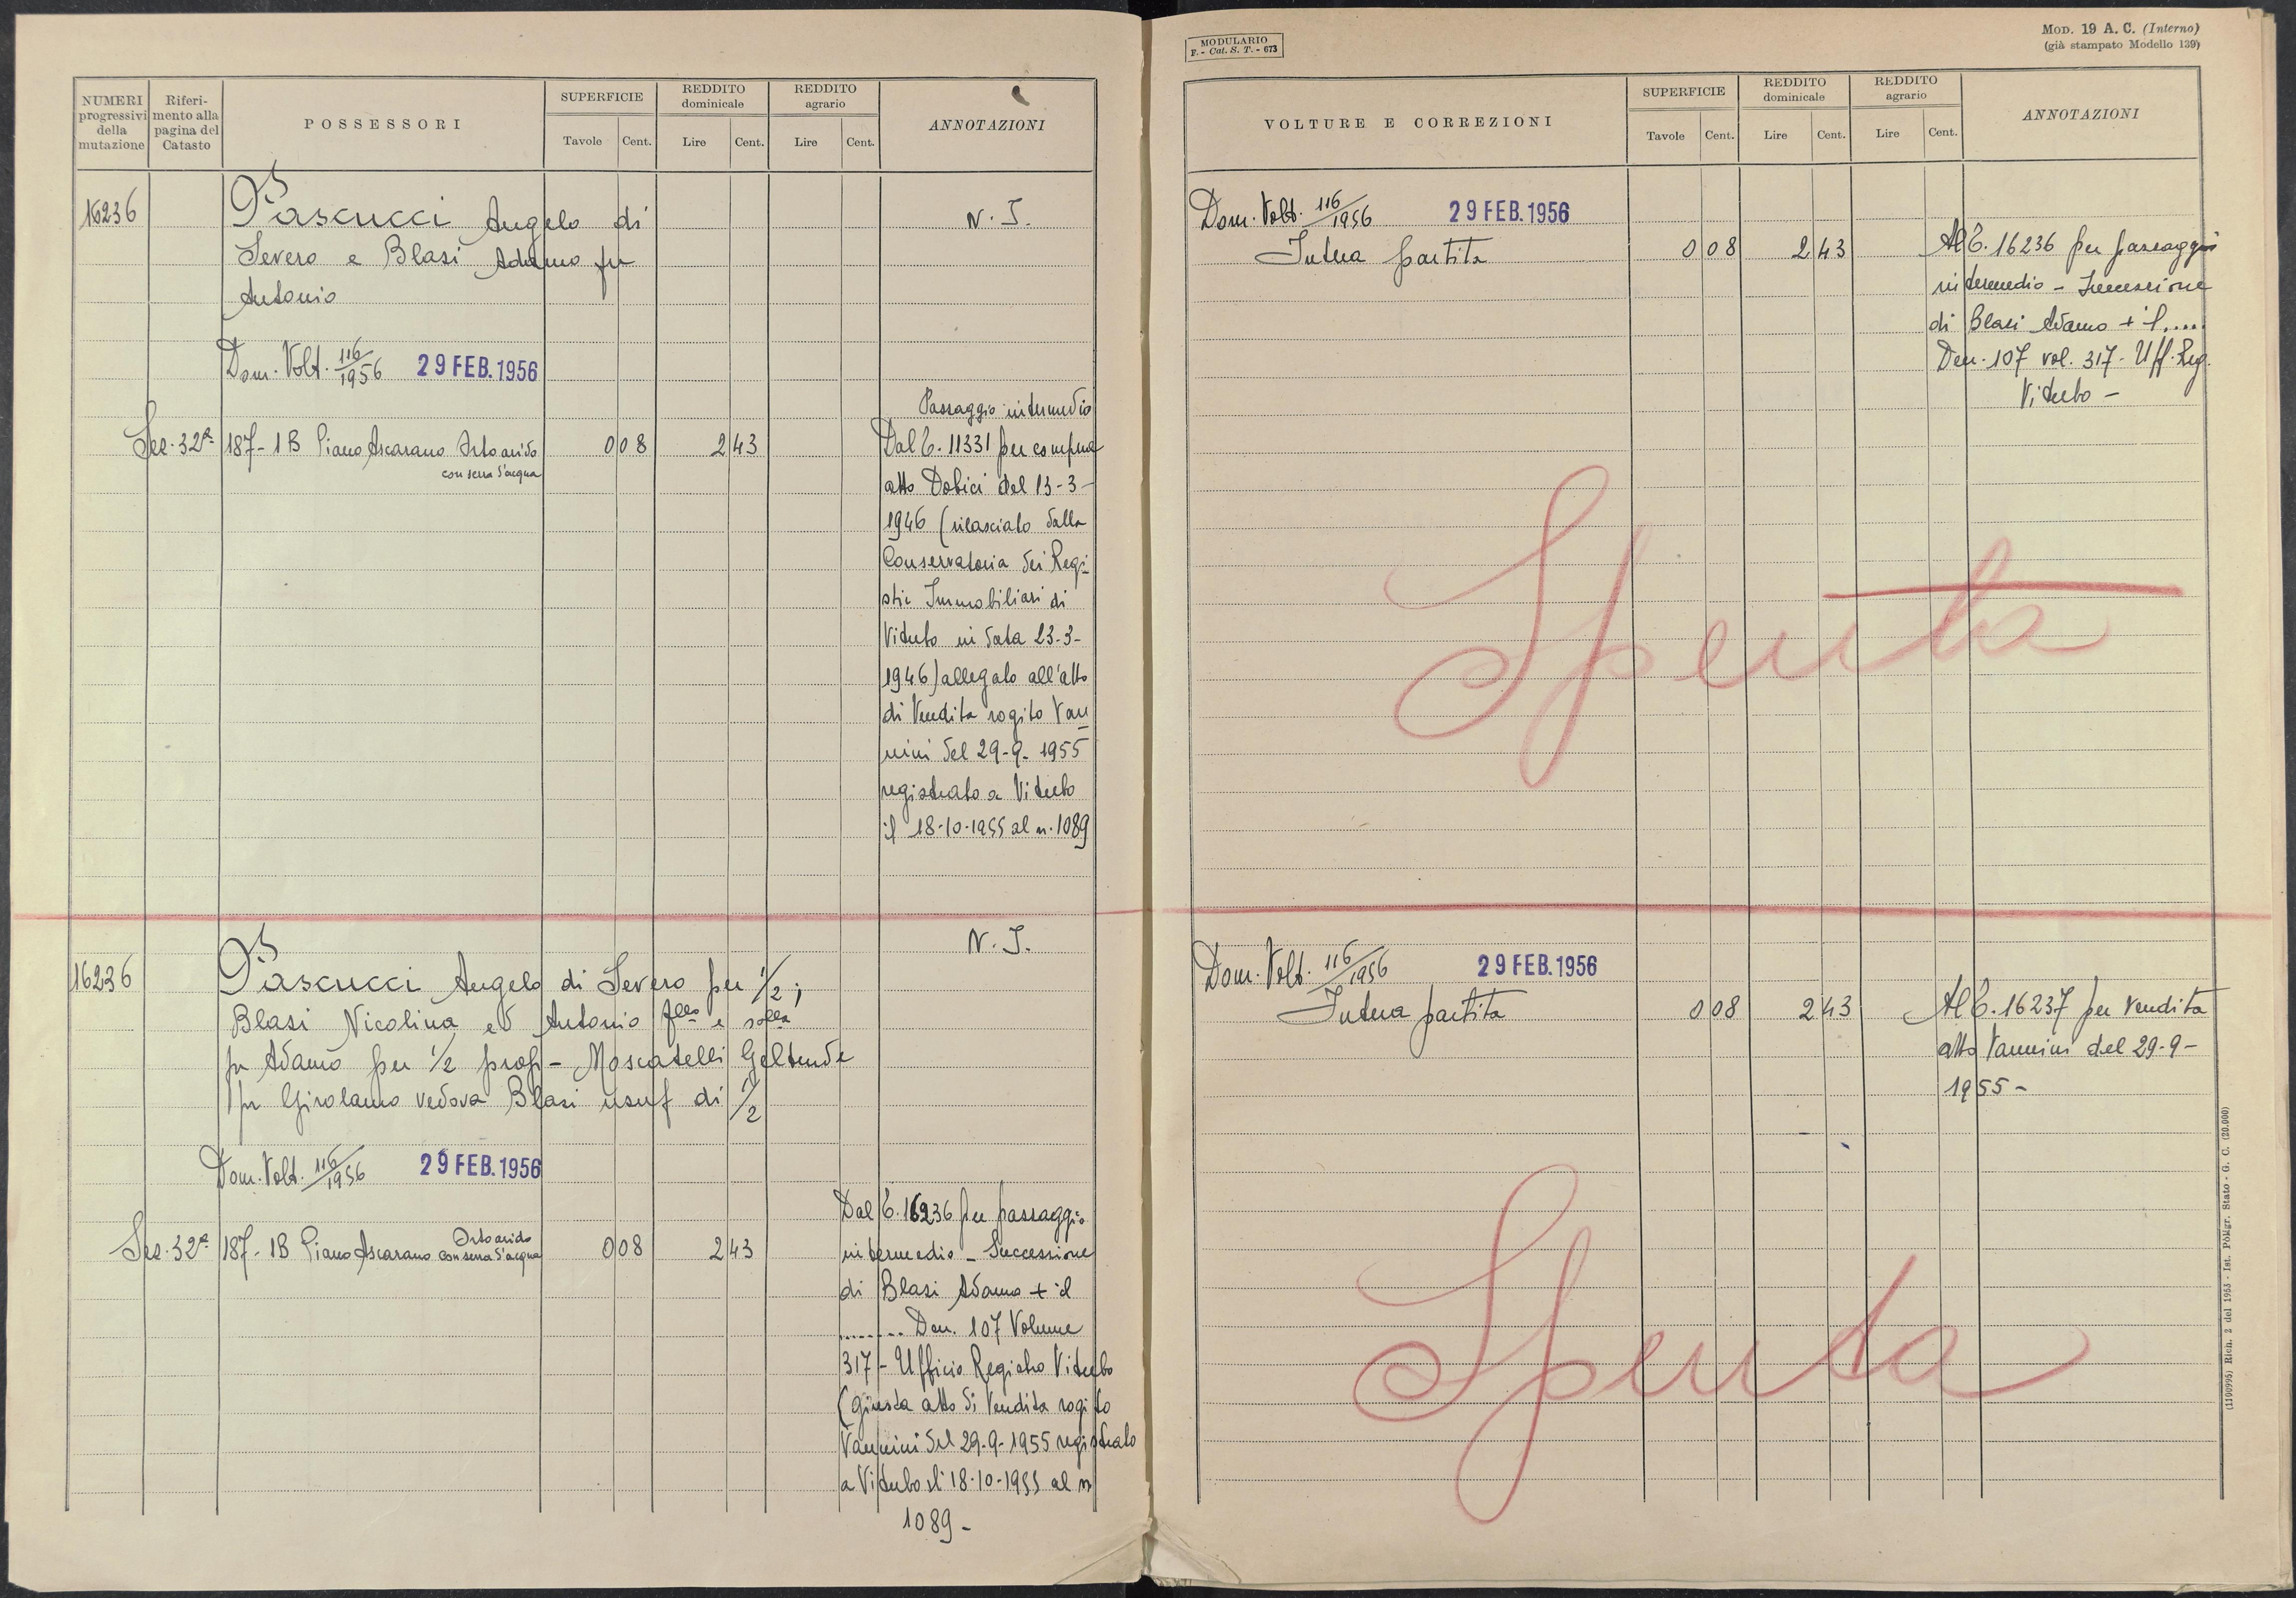 NUMERI progressivi della mutazione
Riferimento alla pagina del Catasto
POSSESSORI
SUPERFICIE
Tavole Cent.
REDDITO dominicale
Lire Cent.
REDDITO agrario
Lire Cent.
ANNOTAZIONI
16236
Pascucci Angelo di
Severo e Blasi Adamo fu
Antonio
N. I.
Dom. Volt. 116/1956 29 FEB. 1956
Sez. 32ª 187 - 1B Piano Ascarano Orto arido 0 08 2 43
con serra d'acqua
Passaggio intermedio
Dal C. 11331 per compra
atto Dobici del 13-3-
1946 (rilasciato dalla
Conservatoria dei Regi-
stri Immobiliari di
Viterbo in data 23-3-
1946) allegato all'atto
di Vendita rogito Van
nini del 29-9-1955
registrato a Viterbo
il 18-10-1955 al n. 1089
16236
Pascucci Angelo di Severo per 1/2;
Blasi Nicolina ed Antonio flla e solla
fu Adamo per 1/2 propr - Moscatelli Geltrude
fu Girolamo vedova Blasi usuf di 1/2
N. I.
Dom. Volt. 116/1956 29 FEB. 1956
Sez. 32ª 187 - 1B Piano Ascarano Orto arido con serra d'acqua 0 08 2 43
Dal C. 16236 per passaggio
intermedio - Successione
di Blasi Adamo + il
........ Den. 107 Volume
317 - Ufficio Registro Viterbo
(giusta atto di Vendita rogito
Vannini del 29-9-1955 registrato
a Viterbo il 18-10-1955 al n
1089 -
MODULARIO
F. - Cat. S. T. - 673
MOD. 19 A. C. (Interno)
(già stampato Modello 139)
VOLTURE E CORREZIONI
SUPERFICIE
Tavole Cent.
REDDITO dominicale
Lire Cent.
REDDITO agrario
Lire Cent.
ANNOTAZIONI
Dom. Volt. 116/1956 29 FEB. 1956
Intera partita 0 08 2 43
Al C. 16236 per passaggio
intermedio - Successione
di Blasi Adamo + il ....
Den. 107 vol. 317 - Uff. Reg.
Viterbo -
Spenta
Dom. Volt. 116/1956 29 FEB. 1956
Intera partita 0 08 2 43
Al C. 16237 per vendita
atto Vannini del 29-9-
1955 -
Spenta
(1190995) Rich. 2 del 1953 - Ist. Poligr. Stato - G. C. (20.000)